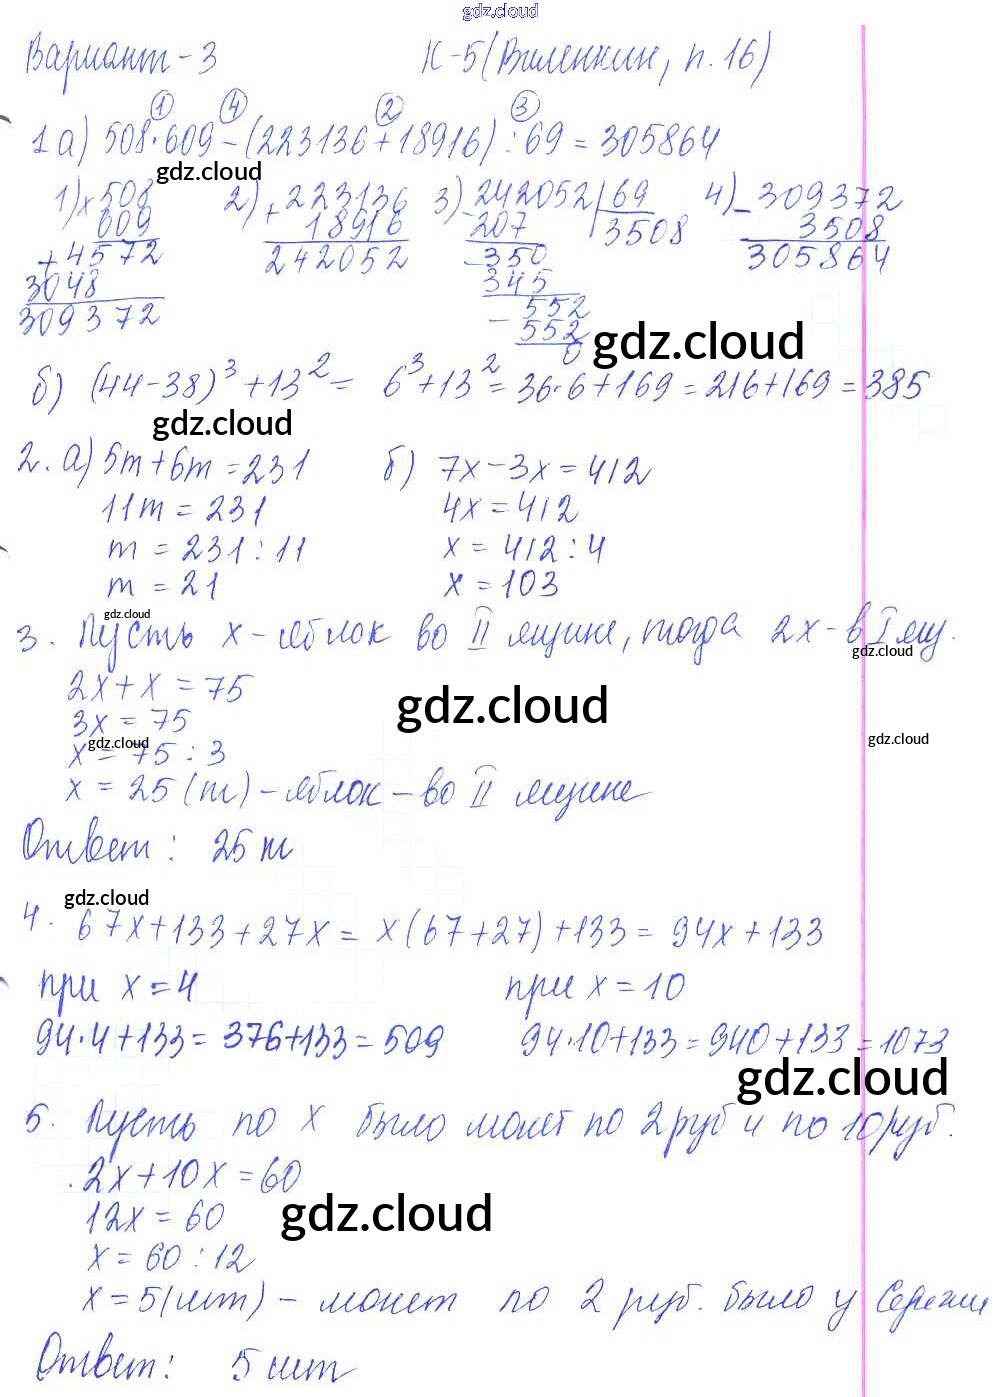 gdz.cloud
Вариант - 3 К-5 (Виленкин, п. 16)
① ④ ② ③
1 а) 508·609 - (223136 + 18916) : 69 = 305864
gdz.cloud
1) × 508 2) + 223136 3) - 242052 | 69 4) - 309372
609 18916 207 3508 3508
+ 4572 242052 - 350 305864
3048 345
309372 - 552
552
0
gdz.cloud
б) (44-38)³ + 13² = 6³ + 13² = 36·6 + 169 = 216 + 169 = 385
gdz.cloud
2. а) 5m + 6m = 231 б) 7x - 3x = 412
11m = 231 4x = 412
m = 231 : 11 x = 412 : 4
m = 21 x = 103
gdz.cloud
3. Пусть x - яблок во II ящике, тогда 2x - в I ящ.
gdz.cloud
2x + x = 75
gdz.cloud
3x = 75
gdz.cloud gdz.cloud
x = 75 : 3
x = 25 (т) - яблок - во II ящике
Ответ: 25 т
gdz.cloud
4. 67x + 133 + 27x = x(67+27) + 133 = 94x + 133
при x = 4 при x = 10
94·4 + 133 = 376 + 133 = 509 94·10 + 133 = 940 + 133 = 1073
gdz.cloud
5. Пусть по x было монет по 2 руб и по 10 руб.
2x + 10x = 60
12x = 60
gdz.cloud
x = 60 : 12
x = 5 (шт) - монет по 2 руб. было у Сережи
Ответ: 5 шт